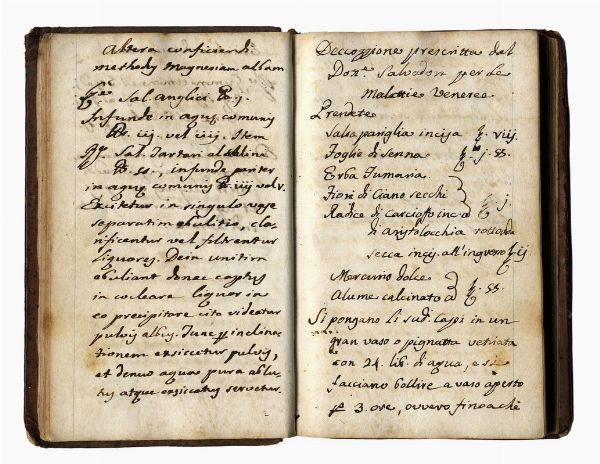 Altera conficiendi
methodus magnesiam albam
Sal. Anglici ℔. j.
Infunde in aquæ comunis
℔. iij. vel iiij. Item
Sal. Tartari alchalina
℔. ss., infunde pariter
in aquæ comunis ℔. iiij vel v.
Excitetur in singulo vase
separatim ebulitio, cla-
rificentur vel filtrentur
liquores. Dein unitim
ebuliant donec captus
in cocleare liquor in
eo precipitare cito videatur
pulvis albus. Tunc p inclina-
tionem exsiccetur pulvis,
et denuo aquâ pura ablu-
tus atque exsiccatus servetur.
Decozzione prescritta dal
Dotte. Salvadori per le
Malattie Veneree
Prendete
Salsa pariglia incisa ℥. viij.
Foglie di senna ℥. j. ss.
Erba Fumaria
Fiori di Ciano secchi
Radice di Carcioffo inc. a ℥. j.
di aristolochia rotonda
secca incis. all'ingrosso ℥. ij
Mercurio dolce
Alume calcinato a ℥. ss.
Si pongano li sud. Capi in un
gran vaso o pignatta vetriata
con 24. lib. di aqua, e si
facciano bollire a vaso aperto
p 3. ore, ovvero finoachè